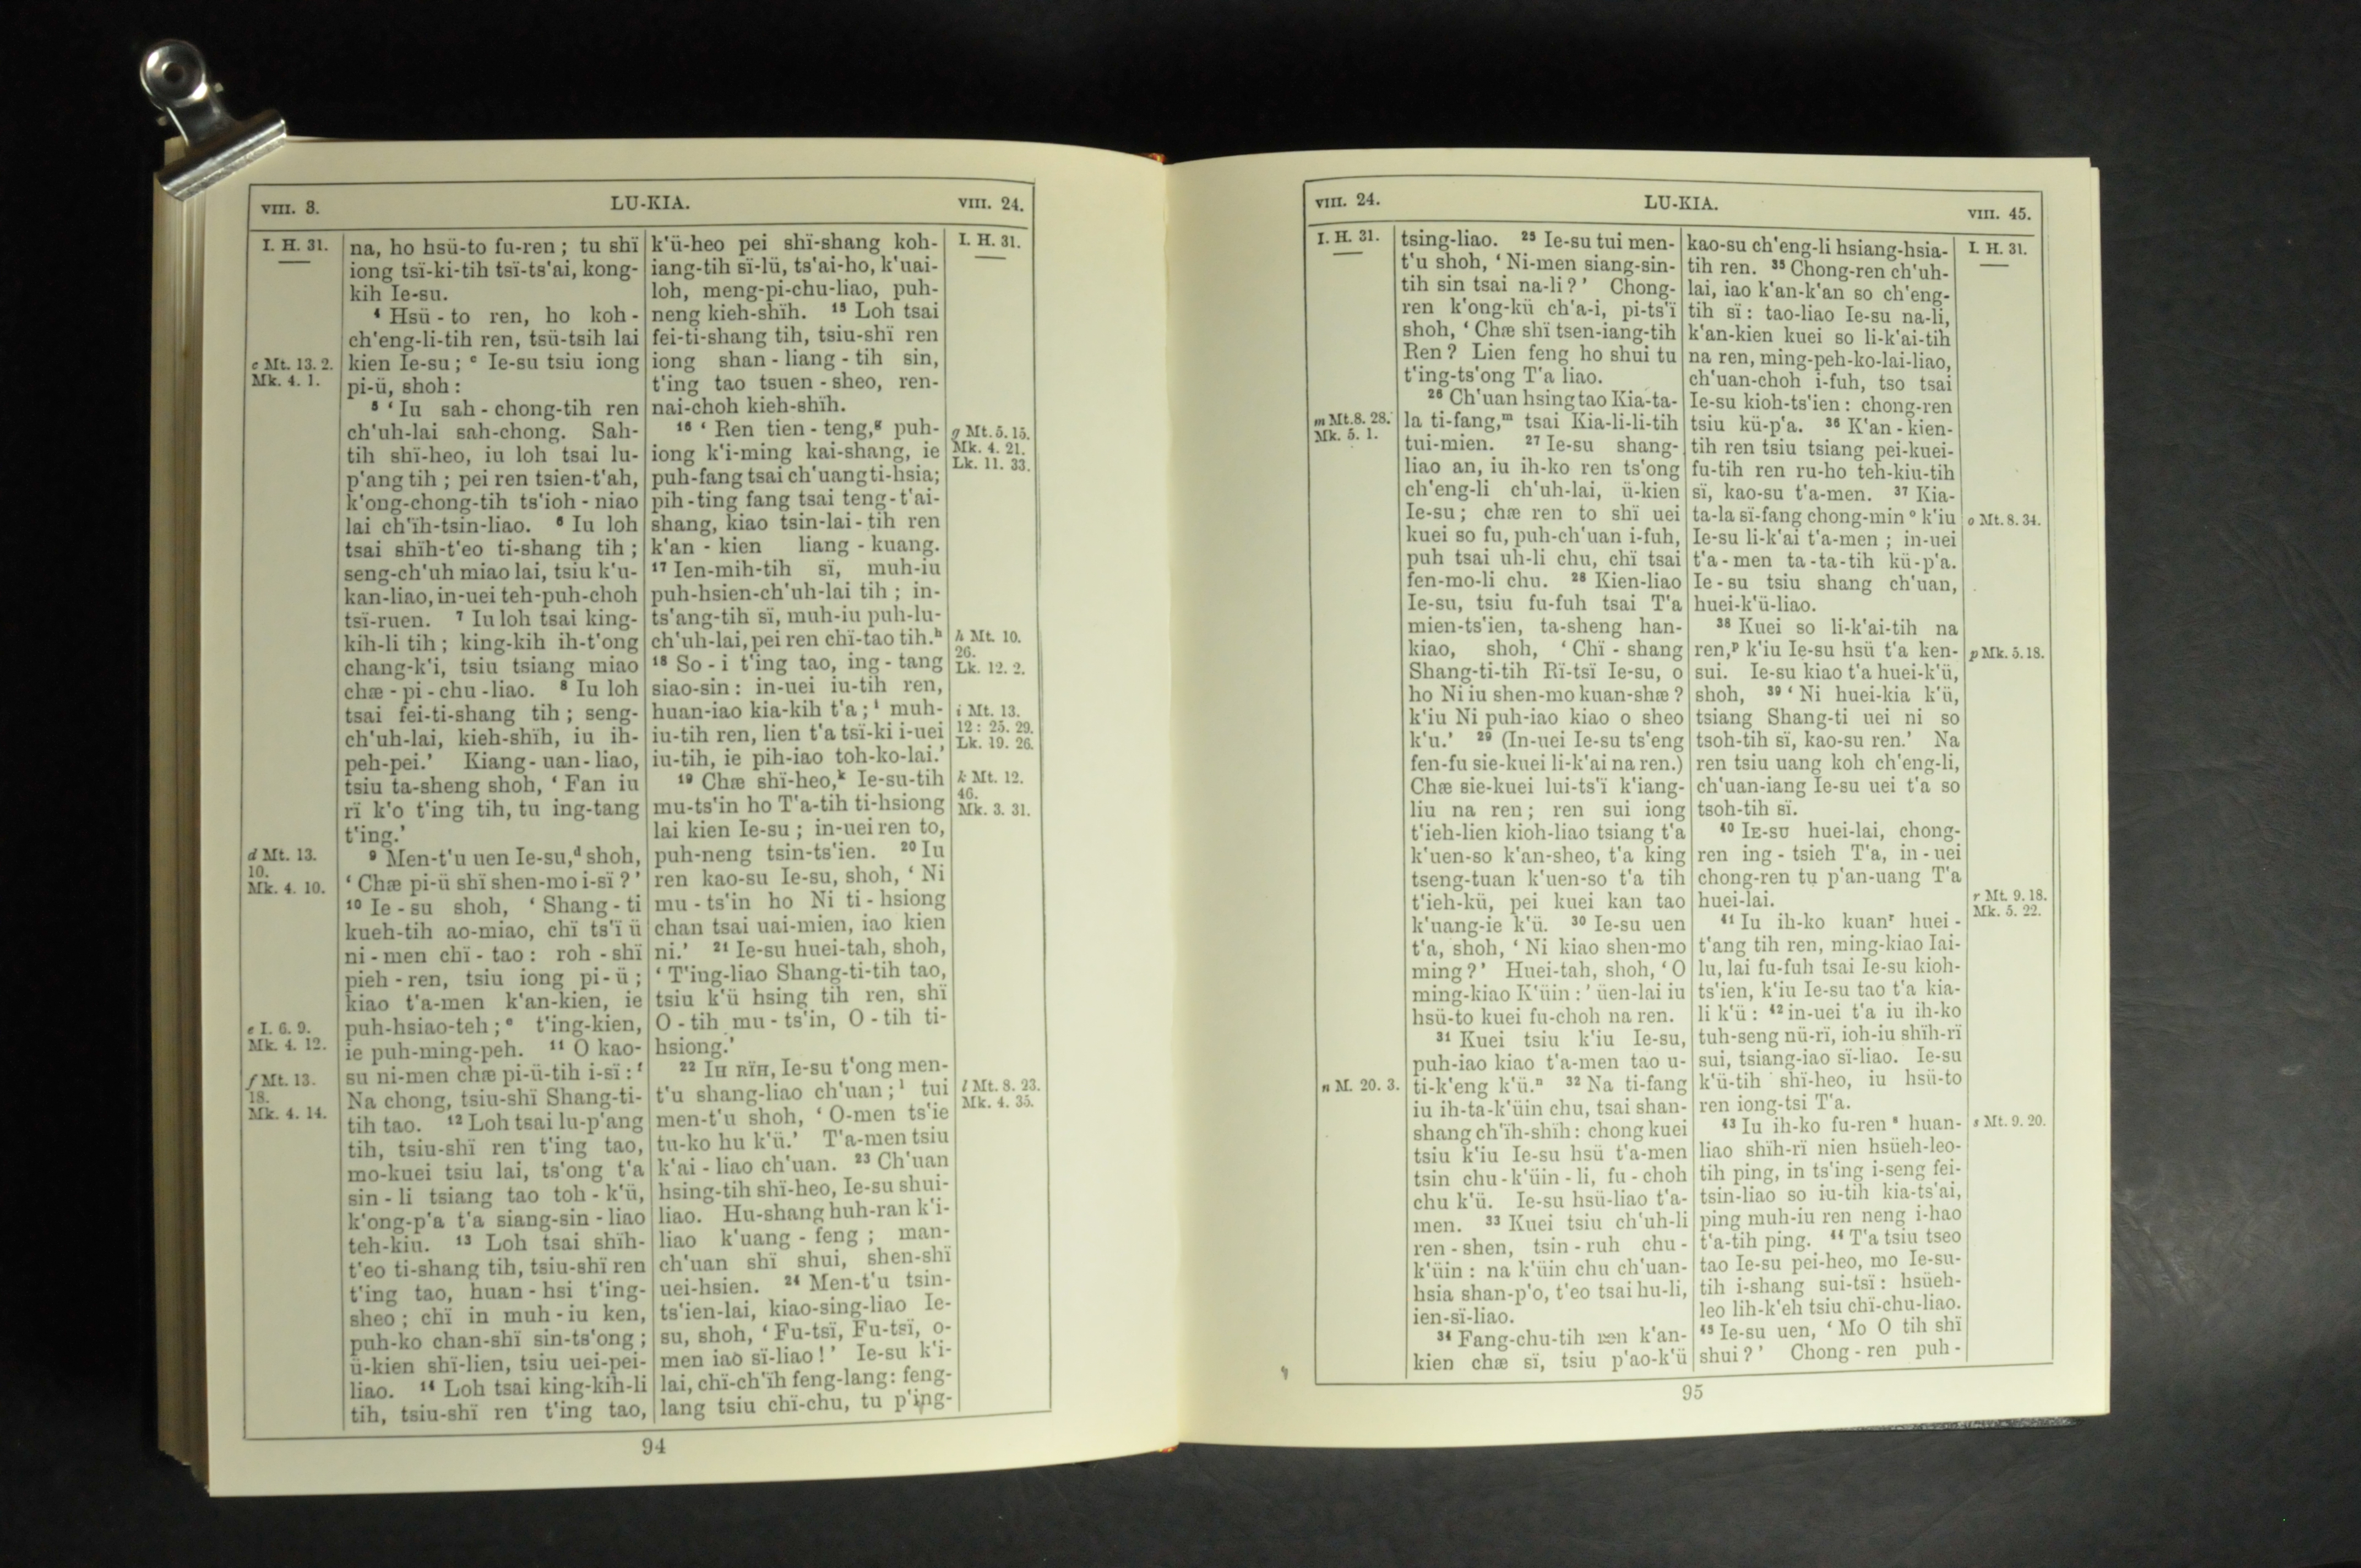 VIII. 3.
LU-KIA.
VIII. 24.
I. H. 31.
c Mt. 13. 2.
Mk. 4. 1.
d Mt. 13.
10.
Mk. 4. 10.
e I. 6. 9.
Mk. 4. 12.
f Mt. 13.
18.
Mk. 4. 14.
na, ho hsü-to fu-ren; tu shï
iong tsï-ki-tih tsï-ts'ai, kong-
kih Ie-su.
⁴ Hsü-to ren, ho koh-
ch'eng-li-tih ren, tsü-tsih lai
kien Ie-su; ᶜ Ie-su tsiu iong
pi-ü, shoh:
⁵ ‘Iu sah-chong-tih ren
ch'uh-lai sah-chong. Sah-
tih shï-heo, iu loh tsai lu-
p'ang tih; pei ren tsien-t'ah,
k'ong-chong-tih ts'ioh-niao
lai ch'ïh-tsin-liao. ⁶ Iu loh
tsai shïh-t'eo ti-shang tih;
seng-ch'uh miao lai, tsiu k'u-
kan-liao, in-uei teh-puh-choh
tsï-ruen. ⁷ Iu loh tsai king-
kih-li tih; king-kih ih-t'ong
chang-k'i, tsiu tsiang miao
chæ-pi-chu-liao. ⁸ Iu loh
tsai fei-ti-shang tih; seng-
ch'uh-lai, kieh-shïh, iu ih-
peh-pei.’ Kiang-uan-liao,
tsiu ta-sheng shoh, ‘Fan iu
rï k'o t'ing tih, tu ing-tang
t'ing.’
⁹ Men-t'u uen Ie-su,ᵈ shoh,
‘Chæ pi-ü shï shen-mo i-sï?’
¹⁰ Ie-su shoh, ‘Shang-ti
kueh-tih ao-miao, chï ts'ï ü
ni-men chï-tao: roh-shï
pieh-ren, tsiu iong pi-ü;
kiao t'a-men k'an-kien, ie
puh-hsiao-teh;ᵉ t'ing-kien,
ie puh-ming-peh. ¹¹ O kao-
su ni-men chæ pi-ü-tih i-sï:ᶠ
Na chong, tsiu-shï Shang-ti-
tih tao. ¹² Loh tsai lu-p'ang
tih, tsiu-shï ren t'ing tao,
mo-kuei tsiu lai, ts'ong t'a
sin-li tsiang tao toh-k'ü,
k'ong-p'a t'a siang-sin-liao
teh-kiu. ¹³ Loh tsai shïh-
t'eo ti-shang tih, tsiu-shï ren
t'ing tao, huan-hsi t'ing-
sheo; chï in muh-iu ken,
puh-ko chan-shï sin-ts'ong;
ü-kien shï-lien, tsiu uei-pei-
liao. ¹⁴ Loh tsai king-kih-li
tih, tsiu-shï ren t'ing tao,
k'ü-heo pei shï-shang koh-
iang-tih sï-lü, ts'ai-ho, k'uai-
loh, meng-pi-chu-liao, puh-
neng kieh-shïh. ¹⁵ Loh tsai
fei-ti-shang tih, tsiu-shï ren
iong shan-liang-tih sin,
t'ing tao tsuen-sheo, ren-
nai-choh kieh-shïh.
¹⁶ ‘Ren tien-teng,ᵍ puh-
iong k'i-ming kai-shang, ie
puh-fang tsai ch'uang ti-hsia;
pih-ting fang tsai teng-t'ai-
shang, kiao tsin-lai-tih ren
k'an-kien liang-kuang.
¹⁷ Ien-mih-tih sï, muh-iu
puh-hsien-ch'uh-lai tih; in-
ts'ang-tih sï, muh-iu puh-lu-
ch'uh-lai, pei ren chï-tao tih.ʰ
¹⁸ So-i t'ing tao, ing-tang
siao-sin: in-uei iu-tih ren,
huan-iao kia-kih t'a;ⁱ muh-
iu-tih ren, lien t'a tsï-ki i-uei
iu-tih, ie pih-iao toh-ko-lai.’
¹⁹ Chæ shï-heo,ᵏ Ie-su-tih
mu-ts'in ho T'a-tih ti-hsiong
lai kien Ie-su; in-uei ren to,
puh-neng tsin-ts'ien. ²⁰ Iu
ren kao-su Ie-su, shoh, ‘Ni
mu-ts'in ho Ni ti-hsiong
chan tsai uai-mien, iao kien
ni.’ ²¹ Ie-su huei-tah, shoh,
‘T'ing-liao Shang-ti-tih tao,
tsiu k'ü hsing tih ren, shï
O-tih mu-ts'in, O-tih ti-
hsiong.’
²² IH RÏH, Ie-su t'ong men-
t'u shang-liao ch'uan;ˡ tui
men-t'u shoh, ‘O-men ts'ie
tu-ko hu k'ü.’ T'a-men tsiu
k'ai-liao ch'uan. ²³ Ch'uan
hsing-tih shï-heo, Ie-su shui-
liao. Hu-shang huh-ran k'i-
liao k'uang-feng; man-
ch'uan shï shui, shen-shï
uei-hsien. ²⁴ Men-t'u tsin-
ts'ien-lai, kiao-sing-liao Ie-
su, shoh, ‘Fu-tsï, Fu-tsï, o-
men iao sï-liao!’ Ie-su k'i-
lai, chï-ch'ïh feng-lang: feng-
lang tsiu chï-chu, tu p'ing-
I. H. 31.
g Mt. 5. 15.
Mk. 4. 21.
Lk. 11. 33.
h Mt. 10.
26.
Lk. 12. 2.
i Mt. 13.
12: 25. 29.
Lk. 19. 26.
k Mt. 12.
46.
Mk. 3. 31.
l Mt. 8. 23.
Mk. 4. 35.
94
VIII. 24.
LU-KIA.
VIII. 45.
I. H. 31.
m Mt. 8. 28.
Mk. 5. 1.
n M. 20. 3.
tsing-liao. ²⁵ Ie-su tui men-
t'u shoh, ‘Ni-men siang-sin-
tih sin tsai na-li?’ Chong-
ren k'ong-kü ch'a-i, pi-ts'ï
shoh, ‘Chæ shï tsen-iang-tih
Ren? Lien feng ho shui tu
t'ing-ts'ong T'a liao.
²⁶ Ch'uan hsing tao Kia-ta-
la ti-fang,ᵐ tsai Kia-li-li-tih
tui-mien. ²⁷ Ie-su shang-
liao an, iu ih-ko ren ts'ong
ch'eng-li ch'uh-lai, ü-kien
Ie-su; chæ ren to shï uei
kuei so fu, puh-ch'uan i-fuh,
puh tsai uh-li chu, chï tsai
fen-mo-li chu. ²⁸ Kien-liao
Ie-su, tsiu fu-fuh tsai T'a
mien-ts'ien, ta-sheng han-
kiao, shoh, ‘Chï-shang
Shang-ti-tih Rï-tsï Ie-su, o
ho Ni iu shen-mo kuan-shæ?
k'iu Ni puh-iao kiao o sheo
k'u.’ ²⁹ (In-uei Ie-su ts'eng
fen-fu sie-kuei li-k'ai na ren.)
Chæ sie-kuei lui-ts'ï k'iang-
liu na ren; ren sui iong
t'ieh-lien kioh-liao tsiang t'a
k'uen-so k'an-sheo, t'a king
tseng-tuan k'uen-so t'a tih
t'ieh-kü, pei kuei kan tao
k'uang-ie k'ü. ³⁰ Ie-su uen
t'a, shoh, ‘Ni kiao shen-mo
ming?’ Huei-tah, shoh, ‘O
ming-kiao K'üin:’ üen-lai iu
hsü-to kuei fu-choh na ren.
³¹ Kuei tsiu k'iu Ie-su,
puh-iao kiao t'a-men tao u-
ti-k'eng k'ü.ⁿ ³² Na ti-fang
iu ih-ta-k'üin chu, tsai shan-
shang ch'ïh-shïh: chong kuei
tsiu k'iu Ie-su hsü t'a-men
tsin chu-k'üin-li, fu-choh
chu k'ü. Ie-su hsü-liao t'a-
men. ³³ Kuei tsiu ch'uh-li
ren-shen, tsin-ruh chu-
k'üin: na k'üin chu ch'uan-
hsia shan-p'o, t'eo tsai hu-li,
ien-sï-liao.
³⁴ Fang-chu-tih ren k'an-
kien chæ sï, tsiu p'ao-k'ü
kao-su ch'eng-li hsiang-hsia-
tih ren. ³⁵ Chong-ren ch'uh-
lai, iao k'an-k'an so ch'eng-
tih sï: tao-liao Ie-su na-li,
k'an-kien kuei so li-k'ai-tih
na ren, ming-peh-ko-lai-liao,
ch'uan-choh i-fuh, tso tsai
Ie-su kioh-ts'ien: chong-ren
tsiu kü-p'a. ³⁶ K'an-kien-
tih ren tsiu tsiang pei-kuei-
fu-tih ren ru-ho teh-kiu-tih
sï, kao-su t'a-men. ³⁷ Kia-
ta-la sï-fang chong-min ᵒ k'iu
Ie-su li-k'ai t'a-men; in-uei
t'a-men ta-ta-tih kü-p'a.
Ie-su tsiu shang ch'uan,
huei-k'ü-liao.
³⁸ Kuei so li-k'ai-tih na
ren,ᵖ k'iu Ie-su hsü t'a ken-
sui. Ie-su kiao t'a huei-k'ü,
shoh, ³⁹ ‘Ni huei-kia k'ü,
tsiang Shang-ti uei ni so
tsoh-tih sï, kao-su ren.’ Na
ren tsiu uang koh ch'eng-li,
ch'uan-iang Ie-su uei t'a so
tsoh-tih sï.
⁴⁰ IE-SU huei-lai, chong-
ren ing-tsieh T'a, in-uei
chong-ren tu p'an-uang T'a
huei-lai.
⁴¹ Iu ih-ko kuanʳ huei-
t'ang tih ren, ming-kiao Iai-
lu, lai fu-fuh tsai Ie-su kioh-
ts'ien, k'iu Ie-su tao t'a kia-
li k'ü: ⁴² in-uei t'a iu ih-ko
tuh-seng nü-rï, ioh-iu shïh-rï
sui, tsiang-iao sï-liao. Ie-su
k'ü-tih shï-heo, iu hsü-to
ren iong-tsi T'a.
⁴³ Iu ih-ko fu-ren ˢ huan-
liao shïh-rï nien hsüeh-leo-
tih ping, in ts'ing i-seng fei-
tsin-liao so iu-tih kia-ts'ai,
ping muh-iu ren neng i-hao
t'a-tih ping. ⁴⁴ T'a tsiu tseo
tao Ie-su pei-heo, mo Ie-su-
tih i-shang sui-tsï: hsüeh-
leo lih-k'eh tsiu chï-chu-liao.
⁴⁵ Ie-su uen, ‘Mo O tih shï
shui?’ Chong-ren puh-
I. H. 31.
o Mt. 8. 34.
p Mk. 5. 18.
r Mt. 9. 18.
Mk. 5. 22.
s Mt. 9. 20.
95